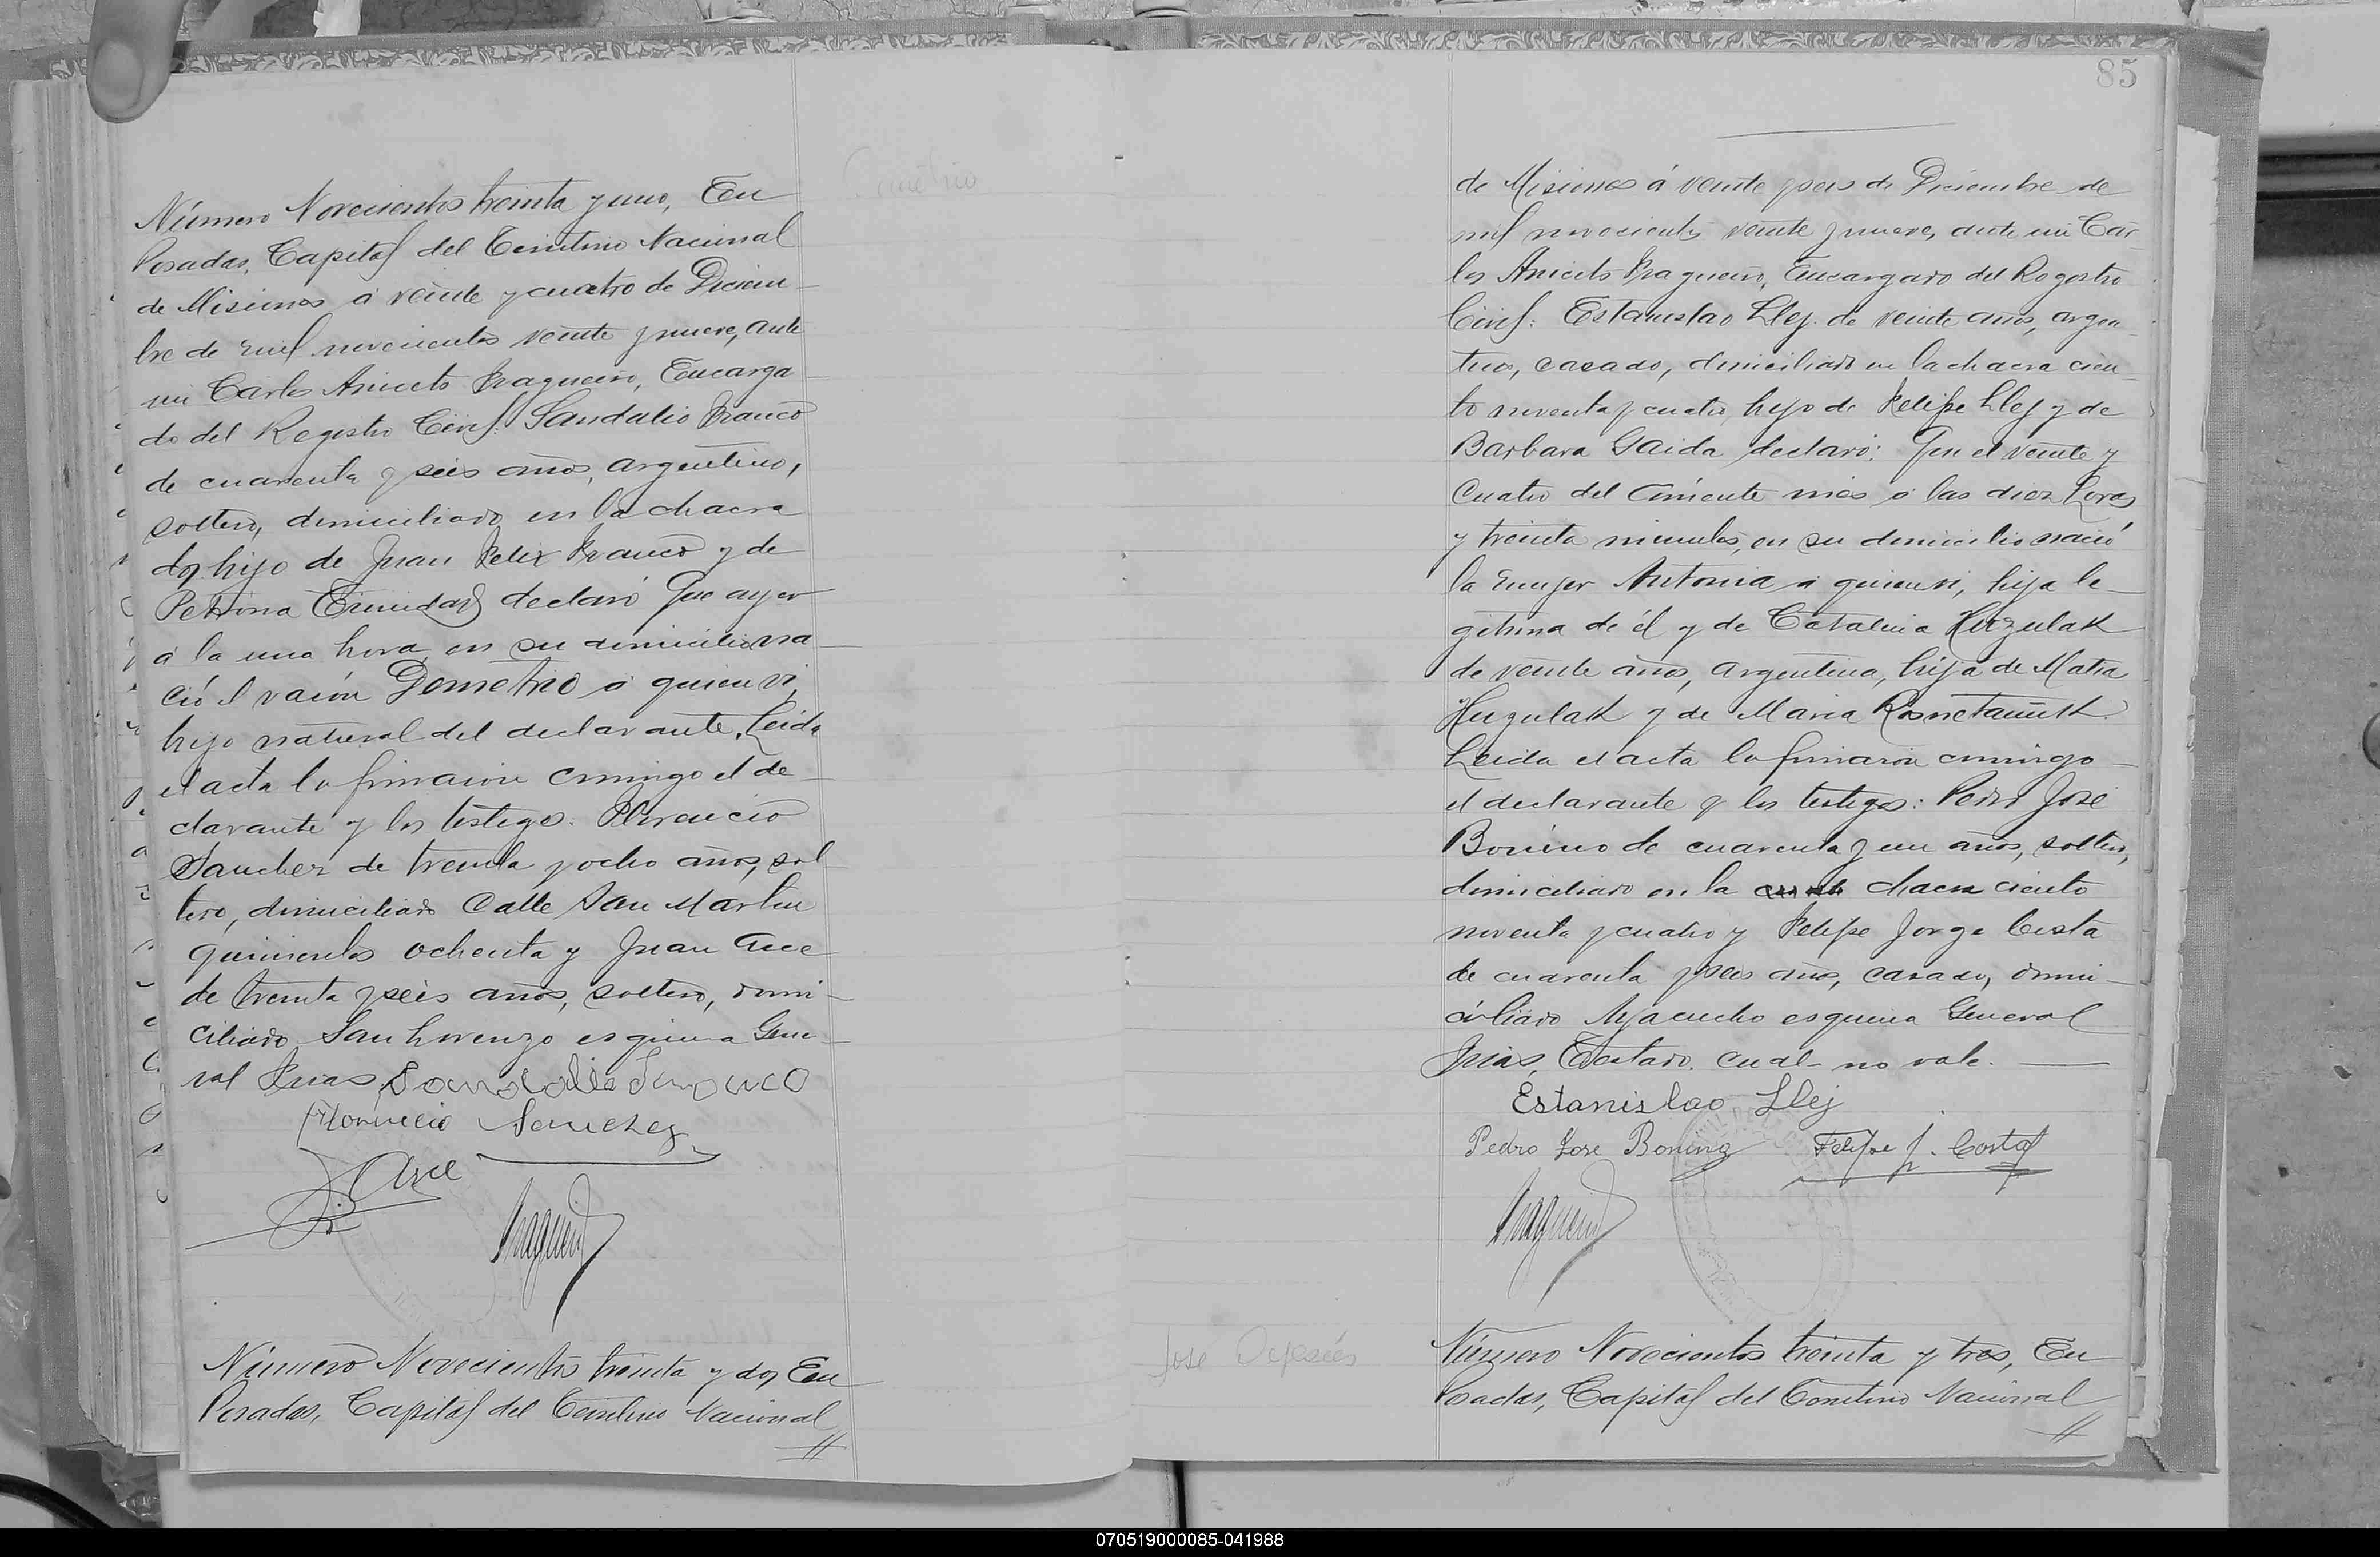 Número Novecientos treinta y uno, En
Posadas, Capital del Territorio Nacional
de Misiones á veinte y cuatro de Diciem-
bre de mil novecientos veinte y nueve, ante
mi Carlos Aniceto Fragueiro, Encarga-
do del Registro Civil: Sandalio Franco
de cuarenta y seis años, argentino,
soltero, domiciliado en la chacra
dos hijo de Juan Felix Franco y de
Petrona Trinidad declaró Que ayer
á la una hora, en su domicilio na-
ció el varón Demetrio á quien vi,
hijo natural del declarante. Leida
el acta la firmaron conmigo el de-
clarante y los testigos: Florencio
Sanchez de treinta y ocho años, sol-
tero, domiciliado Calle San Martin
quinientos ochenta y Juan Arce
de treinta y seis años, soltero, domi-
ciliado San Lorenzo esquina Gene-
ral Frias,
Sandalio Franco
Florencio Sanchez
Arce
Fragueiro
Número Novecientos treinta y dos, En
Posadas, Capital del Territorio Nacional
85
de Misiones á veinte y seis de Diciembre de
mil novecientos veinte y nueve, ante mi Car-
los Aniceto Fragueiro, Encargado del Registro
Civil: Estanislao Llej de veinte años, argen-
tino, casado, domiciliado en la chacra cien-
to noventa y cuatro, hijo de Felipe Llej y de
Barbara Gaida declaró: Que el veinte y
cuatro del corriente mes á las diez horas
y treinta minutos, en su domicilio nació
la mujer Antonia á quien vi, hija le-
gitima de él y de Catalina Huzulak
de veinte años, argentina, hija de Matia
Huzulak y de Maria
Leida el acta la firmaron conmigo
el declarante y los testigos: Pedro José
Bonino de cuarenta y un años, soltero,
domiciliado en la chacra ciento
noventa y cuatro y Felipe Jorge Costa
de cuarenta y seis años, casado, domi-
ciliado Ayacucho esquina General
Frias, Testado. cual- no vale.
Estanislao Llej
Pedro Jose Bonino Felipe J. Costa
Fragueiro
Jose
Número Novecientos treinta y tres, En
Posadas, Capital del Territorio Nacional
070519000085-041988